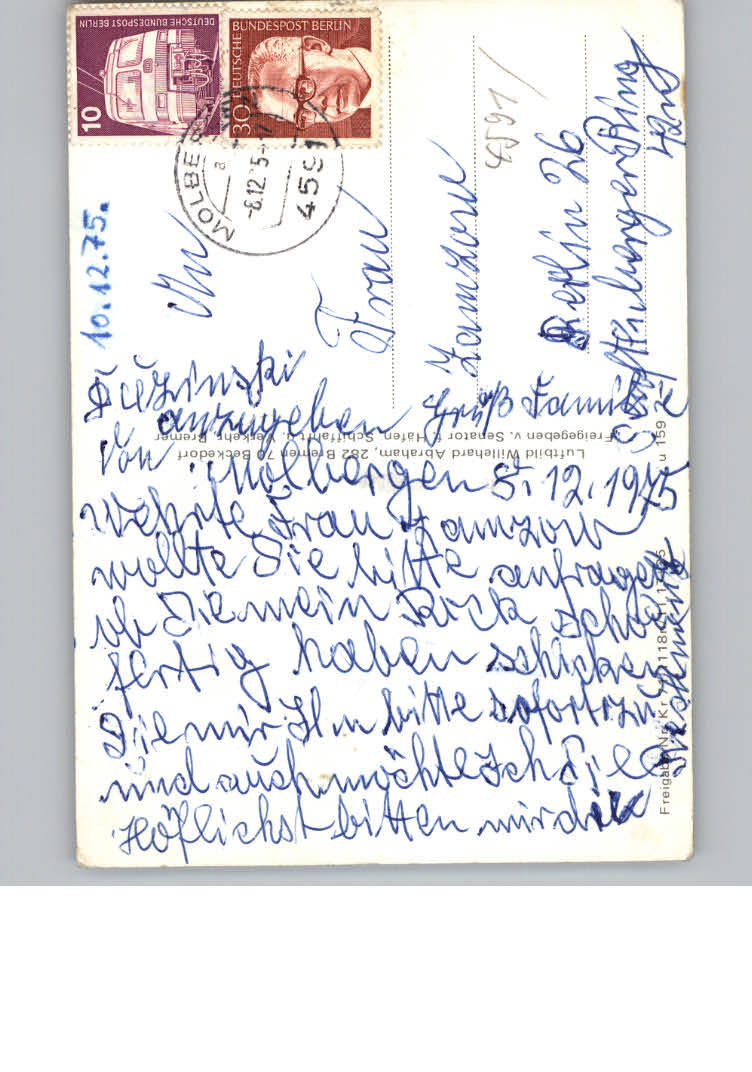 DEUTSCHE BUNDESPOST BERLIN
10
DEUTSCHE BUNDESPOST BERLIN
30
4591
-8.12.75
10.12.75.
4591
An
Frau
Zamzow
Berlin 26
Ring
anzugeben Gruß Familie
von Molbergen 8.12.1975
Wehrte Frau Zamzow
wollte Sie bitte anfragen
ob Sie mein Rock schon
fertig haben schicken
Sie mir Ihn bitte sofort zu
und auch möchte Ich Sie
Höflichst bitten mir die
Luftbild Willehard Abraham, 282 Bremen 70 Beckedorf
Freigegeben v. Senator f. Häfen, Schiffahrt u. Verkehr, Bremen